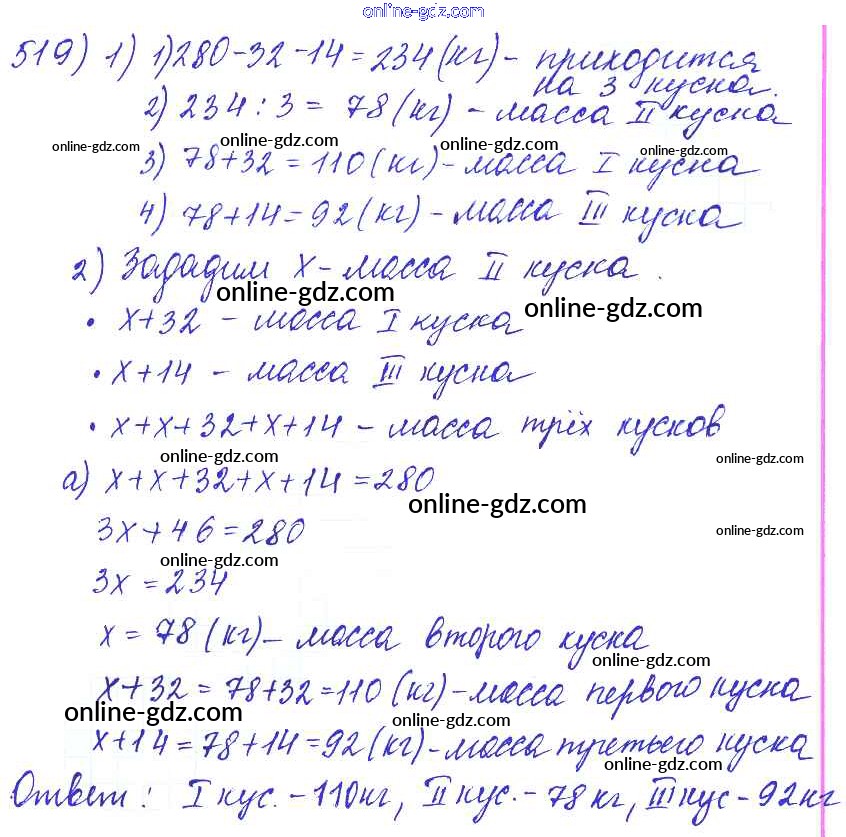 online-gdz.com
519) 1) 1) 280-32-14=234(кг) - приходится
на 3 куска.
2) 234:3= 78(кг) - масса II куска
online-gdz.com online-gdz.com online-gdz.com
3) 78+32=110(кг)-масса I куска
4) 78+14=92(кг)-масса III куска
2) Зададим x-масса II куска.
online-gdz.com online-gdz.com
• x+32 - масса I куска
• x+14 - масса III куска
• x+x+32+x+14 - масса трёх кусков
online-gdz.com online-gdz.com
а) x+x+32+x+14=280
online-gdz.com
3x+46=280
online-gdz.com online-gdz.com
3x=234
x=78(кг)-масса второго куска
online-gdz.com
x+32=78+32=110(кг)-масса первого куска
online-gdz.com online-gdz.com
x+14=78+14=92(кг)-масса третьего куска
online-gdz.com
Ответ: I кус.-110кг, II кус.-78кг, III кус-92кг